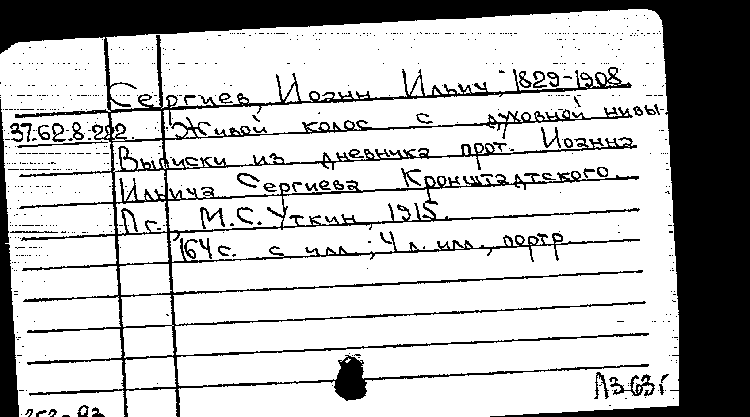 Сергиев, Иоанн Ильич, 1829-1908.
37.62.8.222. Живой колос с духовной нивы.
Выписки из дневника прот. Иоанна
Ильича Сергиева Кронштадтского.
Пг., М.С. Уткин, 1915.
164 с. с илл.; 4 л. илл., портр.